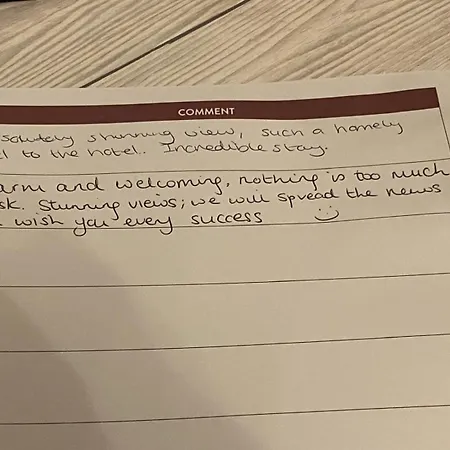 COMMENT
solutely stunning view, such a homely
el to the hotel. Incredible stay.
arm and welcoming, nothing is too much
sk. Stunning views; we will spread the news
wish you every success